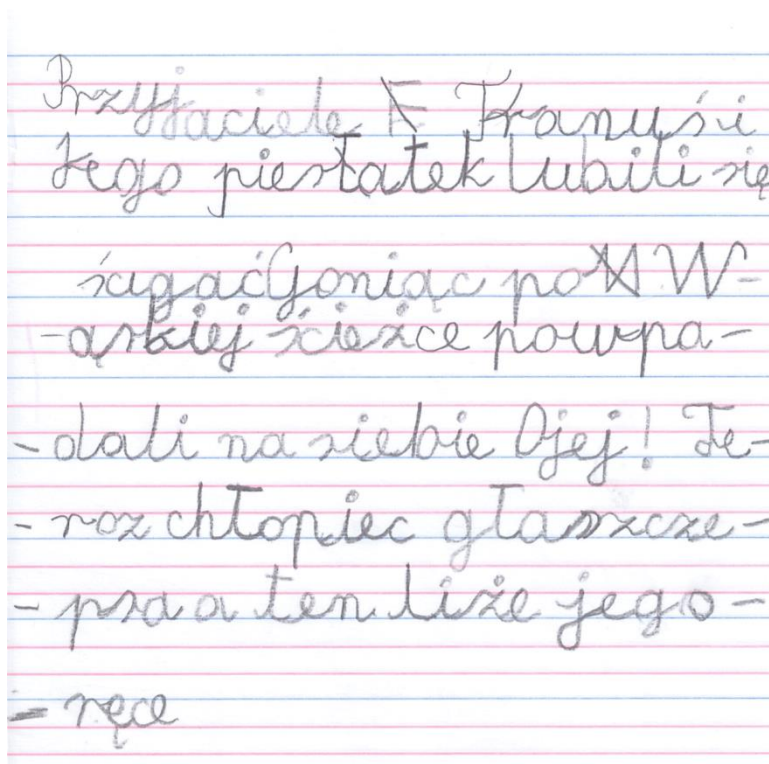 Przyjaciele Franuś i
Jego piesłatek lubili się
ścigać Goniąc po W-
-ąskiej ścieżce powpa-
-dali na siebie Ojej! Te-
-roz chłopiec głaszcze-
-psa a ten liże jego-
-ręce